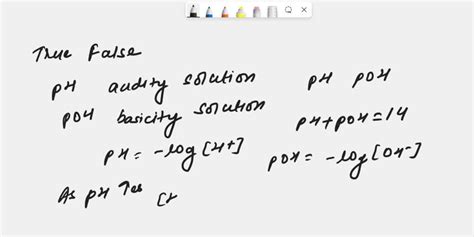 True False
pH acidity solution pH pOH
pOH basicity solution pH + pOH = 14
pH = -log [H+] pOH = -log [OH-]
As pH ↑es [H